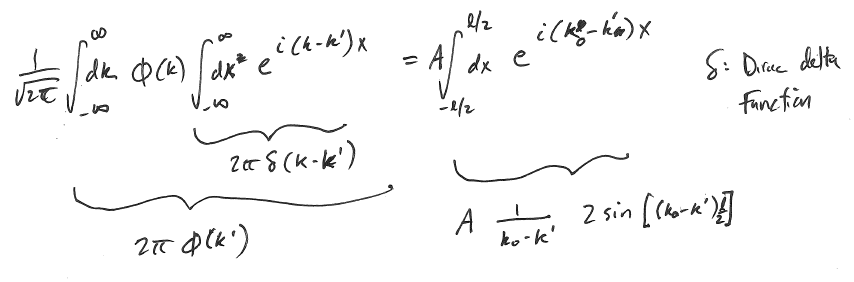 1/√2π ∫_{-∞}^{∞} dk φ(k) ∫_{-∞}^{∞} dx e^{i(k-k')x} = A ∫_{-l/2}^{l/2} dx e^{i(k_0-k')x} δ: Dirac delta
Function
2π δ(k-k')
2π φ(k')
A 1/(k_0-k') 2 sin [(k_0-k') l/2]